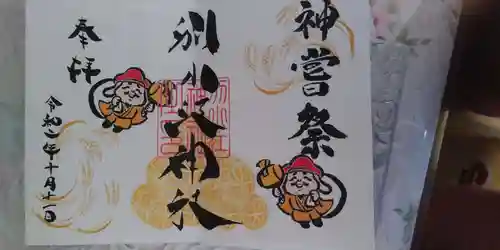 神嘗祭
別小江神社
奉拝
令和二年十月十一日